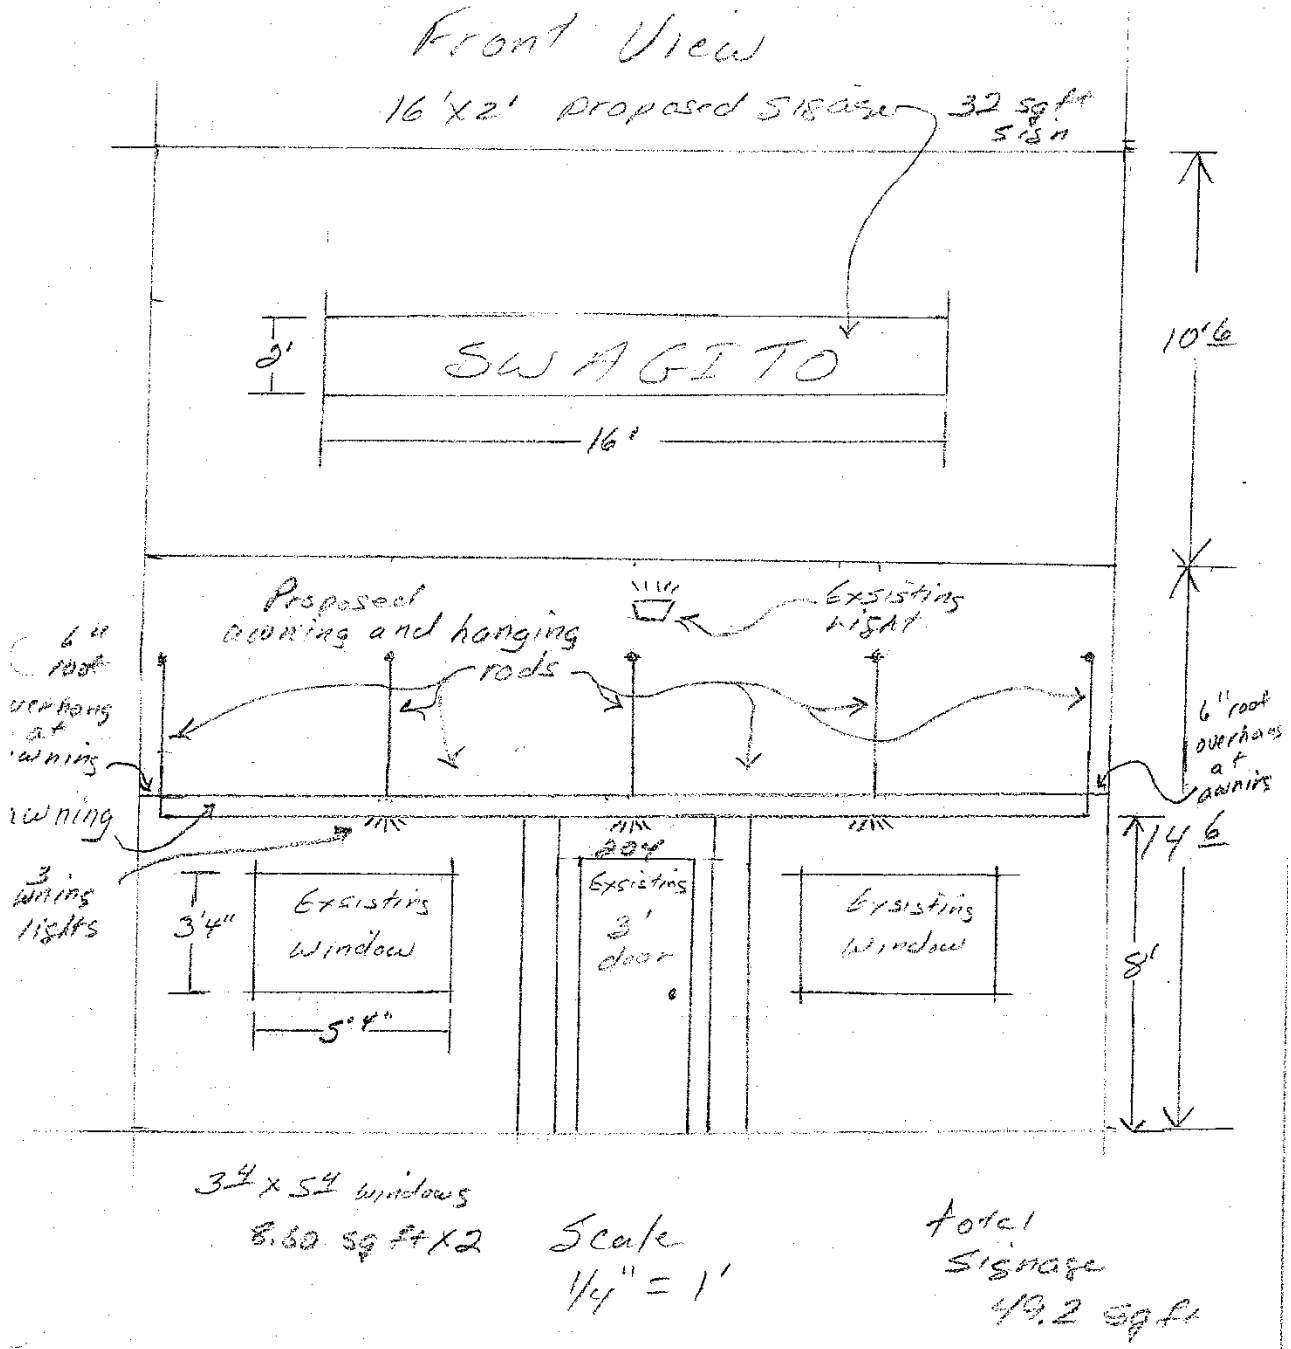 Front View
16'x2' proposed Sigage 32 sq ft
sign
10'6
2'
SWAGITO
16'
Proposed
awning and hanging
rods
Exsisting
Light
6"
roof
overhang
at
awning
awning
3
lights
6" roof
overhang
at
awning
14 6
8'
204
Exsisting
3'
door
3'4"
Exsisting
Window
5'4"
Exsisting
Window
3 4 x 5 4 windows
8.60 sq ft x 2
Scale
1/4" = 1'
total
Signage
49.2 sq ft